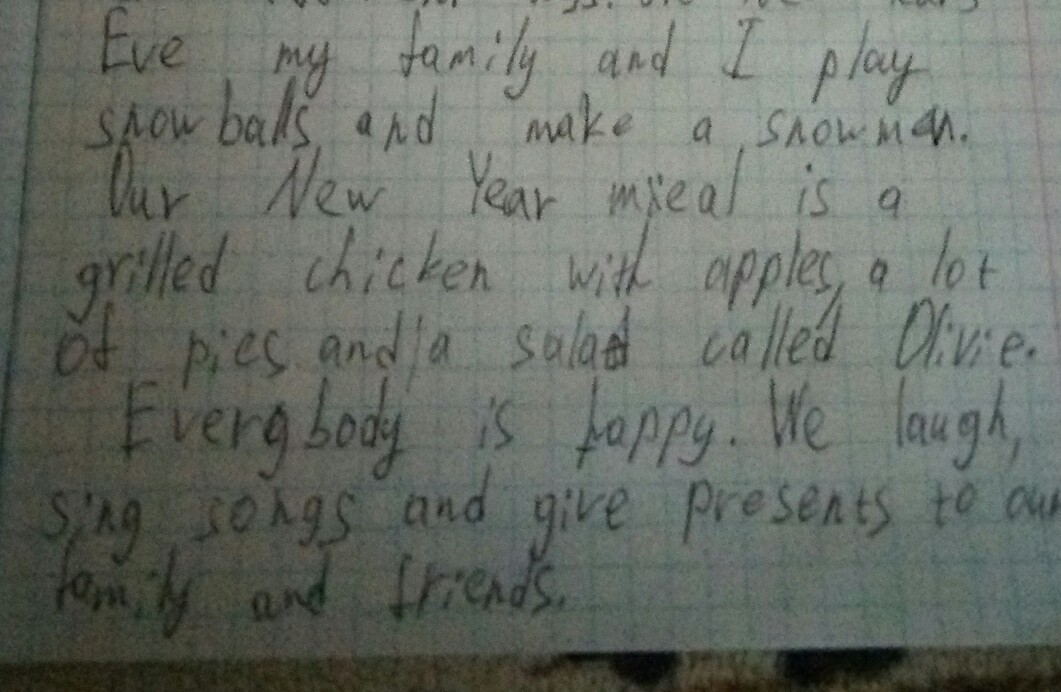 Eve my family and I play
snowballs and make a snowman.
Our New Year meal is a
grilled chicken with apples, a lot
of pies and a salad called Olivie.
Everybody is happy. We laugh,
sing songs and give presents to our
family and friends.